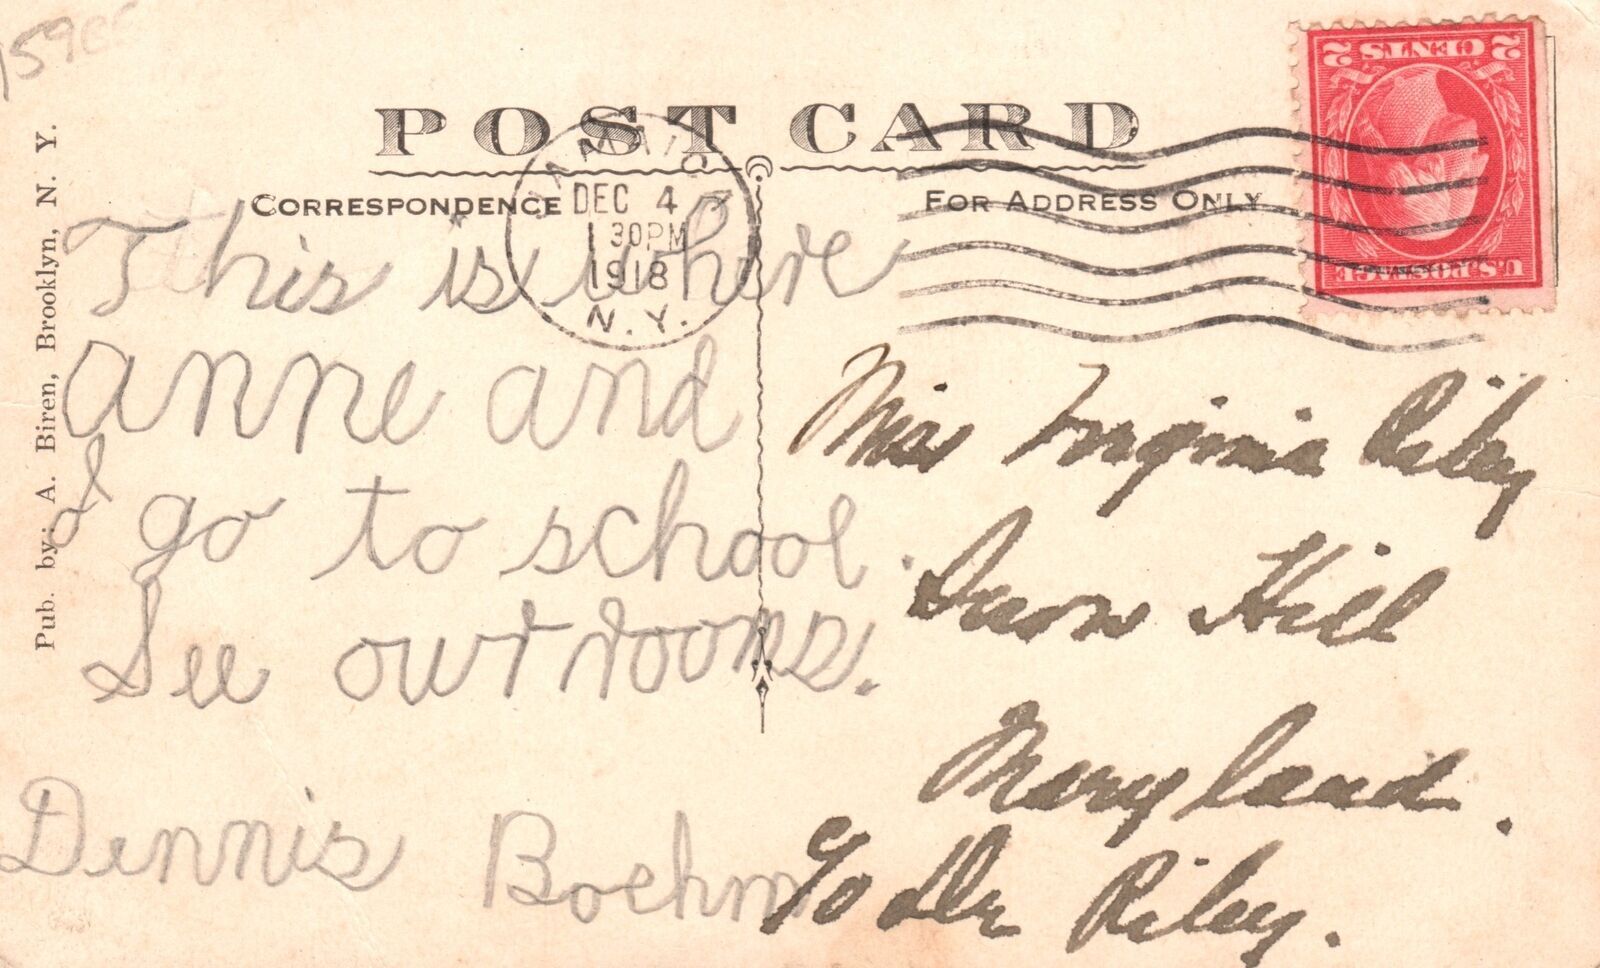 159
POST CARD
CORRESPONDENCE
FOR ADDRESS ONLY
JAMAICA
DEC 4
1 30PM
1918
N.Y.
2 CENTS 2
U.S. POSTAGE
Pub. by: A. Biren, Brooklyn, N. Y.
This is where
anne and
I go to school.
See our rooms.
Dennis Boehm
Miss Virginia Riley
Snow Hill
Maryland.
c/o Dr Riley.